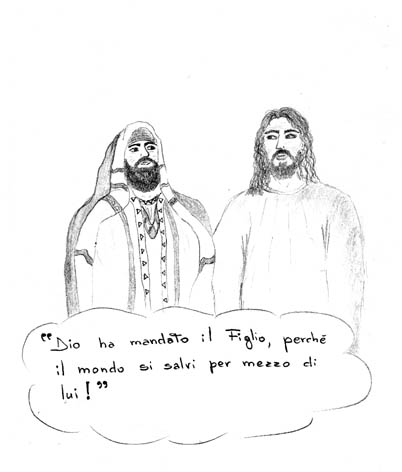 "Dio ha mandato il Figlio, perché
il mondo si salvi per mezzo di
lui!"